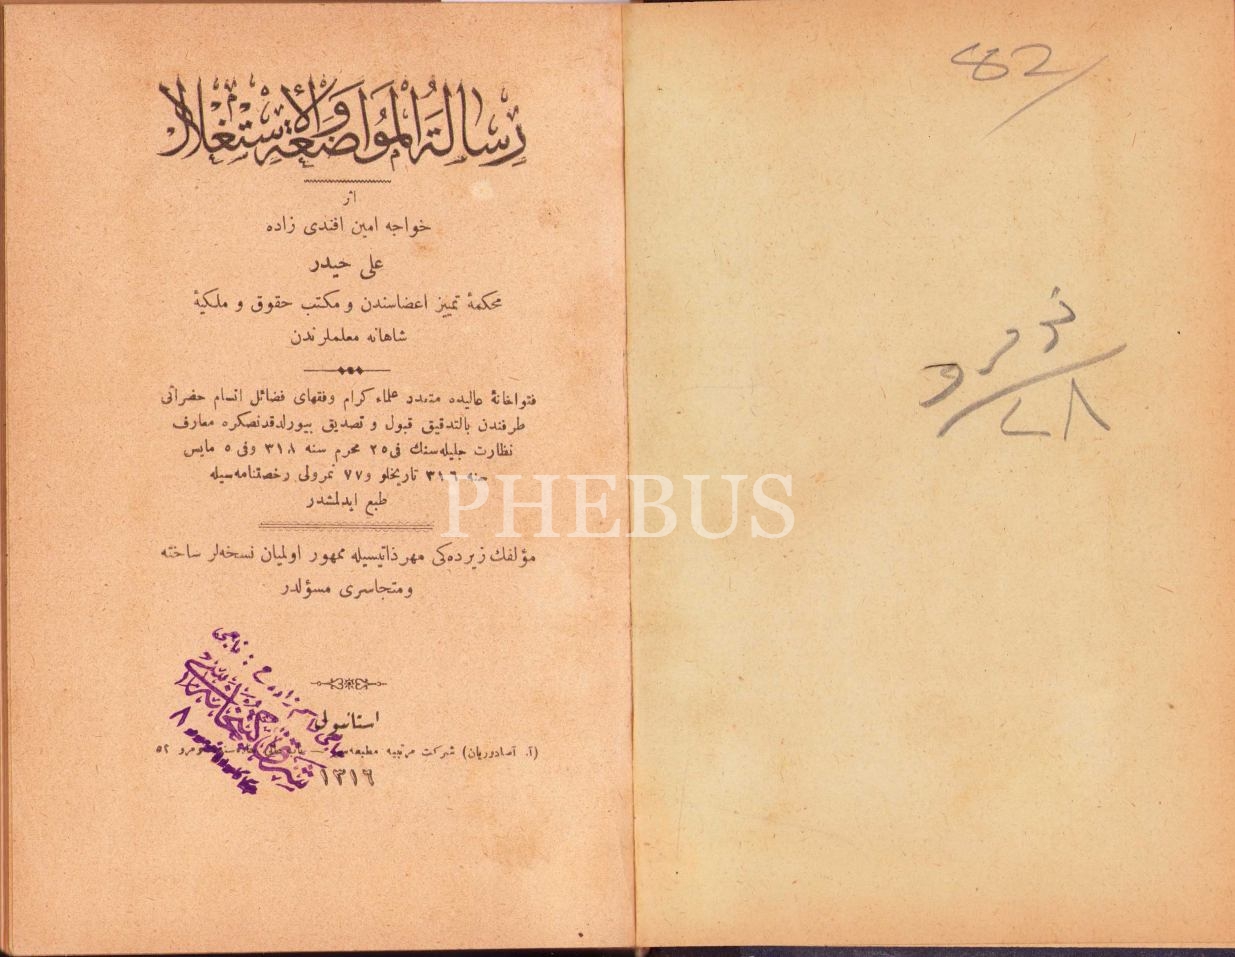 82
نومرو
٧٨
رِسالَةُ المُوَاضَعَةِ وَالْإِسْتِغْلَال
اثر
خواجه امين افندى زاده
على حيدر
محكمهٔ تميز اعضاسندن و مكتب حقوق و ملكيهٔ
شاهانه معلملرندن
فتواخانهٔ عاليده متعدد علماء كرام وفقهاى فضائل اتسام حضراتى
طرفندن بالتدقيق قبول و تصديق بيورلدقدنصكره معارف
نظارت جليله‌سنك فى ٢٥ محرم سنه ٣١٨ وفى ٥ مايس
سنه ٣١٦ تاريخلو و ٧٧ نمرولى رخصتنامه‌سيله
طبع ايدلمشدر
مؤلفك زيرده‌كى مهر ذاتيسيله ممهور اولميان نسخه‌لر ساخته
ومتجاسرى مسؤلدر
استانبول
(آ. آصادوريان) شركت مرتبيه مطبعه‌سى — باب عالى جاده‌سنده نومرو ٥٢
١٣١٦
PHEBUS